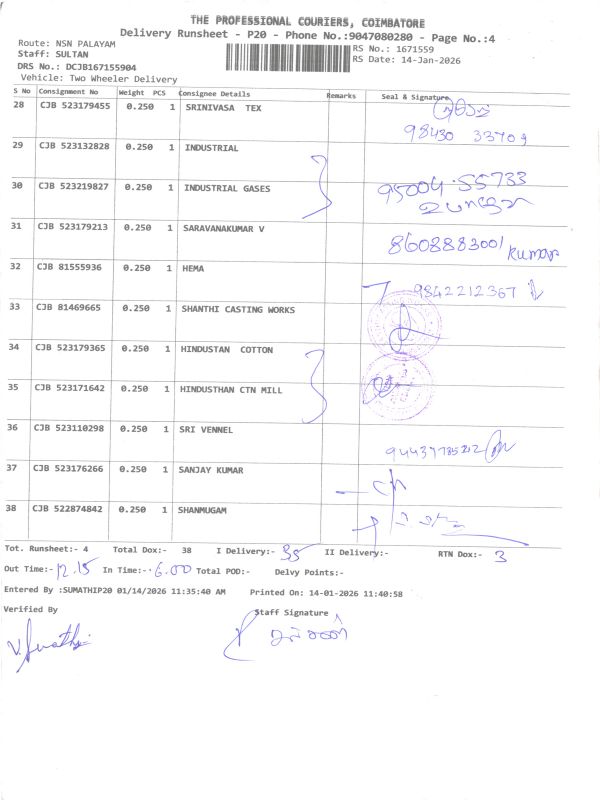 THE PROFESSIONAL COURIERS, COIMBATORE
Delivery Runsheet - P20 - Phone No.:9047080280 - Page No.:4
Route: NSN PALAYAM
RS No.: 1671559
Staff: SULTAN
RS Date: 14-Jan-2026
DRS No.: DCJB167155904
Vehicle: Two Wheeler Delivery
S No Consignment No Weight PCS Consignee Details Remarks Seal & Signature
28 CJB 523179455 0.250 1 SRINIVASA TEX
98430 33709
29 CJB 523132828 0.250 1 INDUSTRIAL
30 CJB 523219827 0.250 1 INDUSTRIAL GASES 95004 55733
31 CJB 523179213 0.250 1 SARAVANAKUMAR V 8608883001 kumar
32 CJB 81555936 0.250 1 HEMA 9842212367
33 CJB 81469665 0.250 1 SHANTHI CASTING WORKS
34 CJB 523179365 0.250 1 HINDUSTAN COTTON
35 CJB 523171642 0.250 1 HINDUSTHAN CTN MILL
36 CJB 523110298 0.250 1 SRI VENNEL
37 CJB 523176266 0.250 1 SANJAY KUMAR
38 CJB 522874842 0.250 1 SHANMUGAM
Tot. Runsheet:- 4 Total Dox:- 38 I Delivery:- 35 II Delivery:- RTN Dox:- 3
Out Time:- 12.15 In Time:- 6.00 Total POD:- Delvy Points:-
Entered By :SUMATHIP20 01/14/2026 11:35:40 AM Printed On: 14-01-2026 11:40:58
Verified By Staff Signature